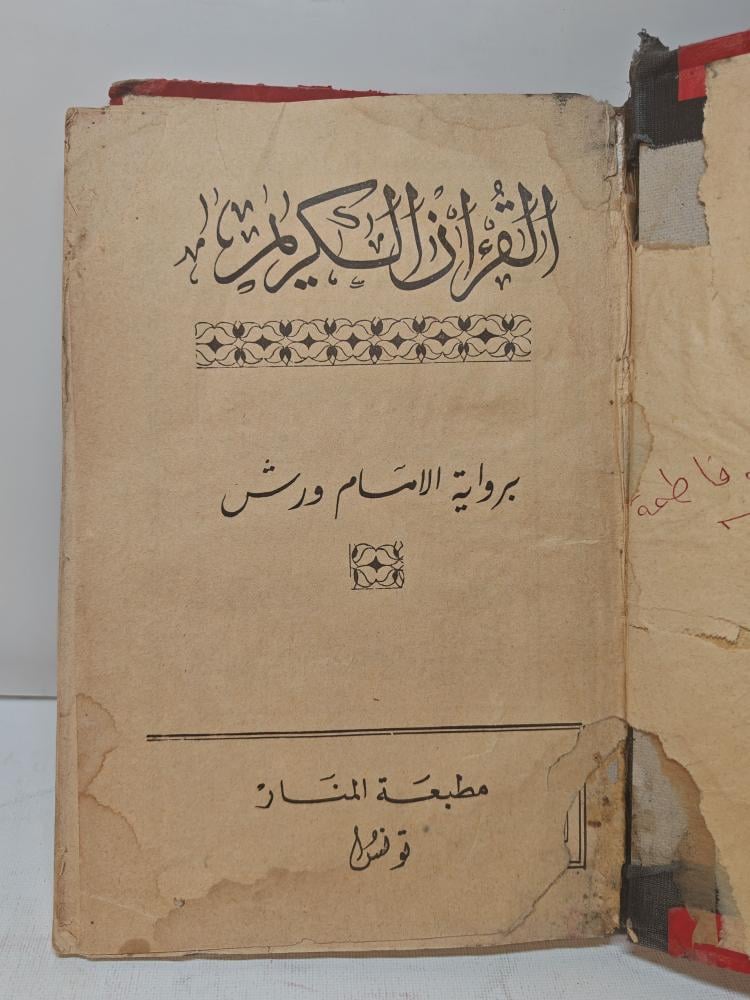 القرءان الكريم
برواية الامام ورش
مطبعة المنار
تونس
فاطمة